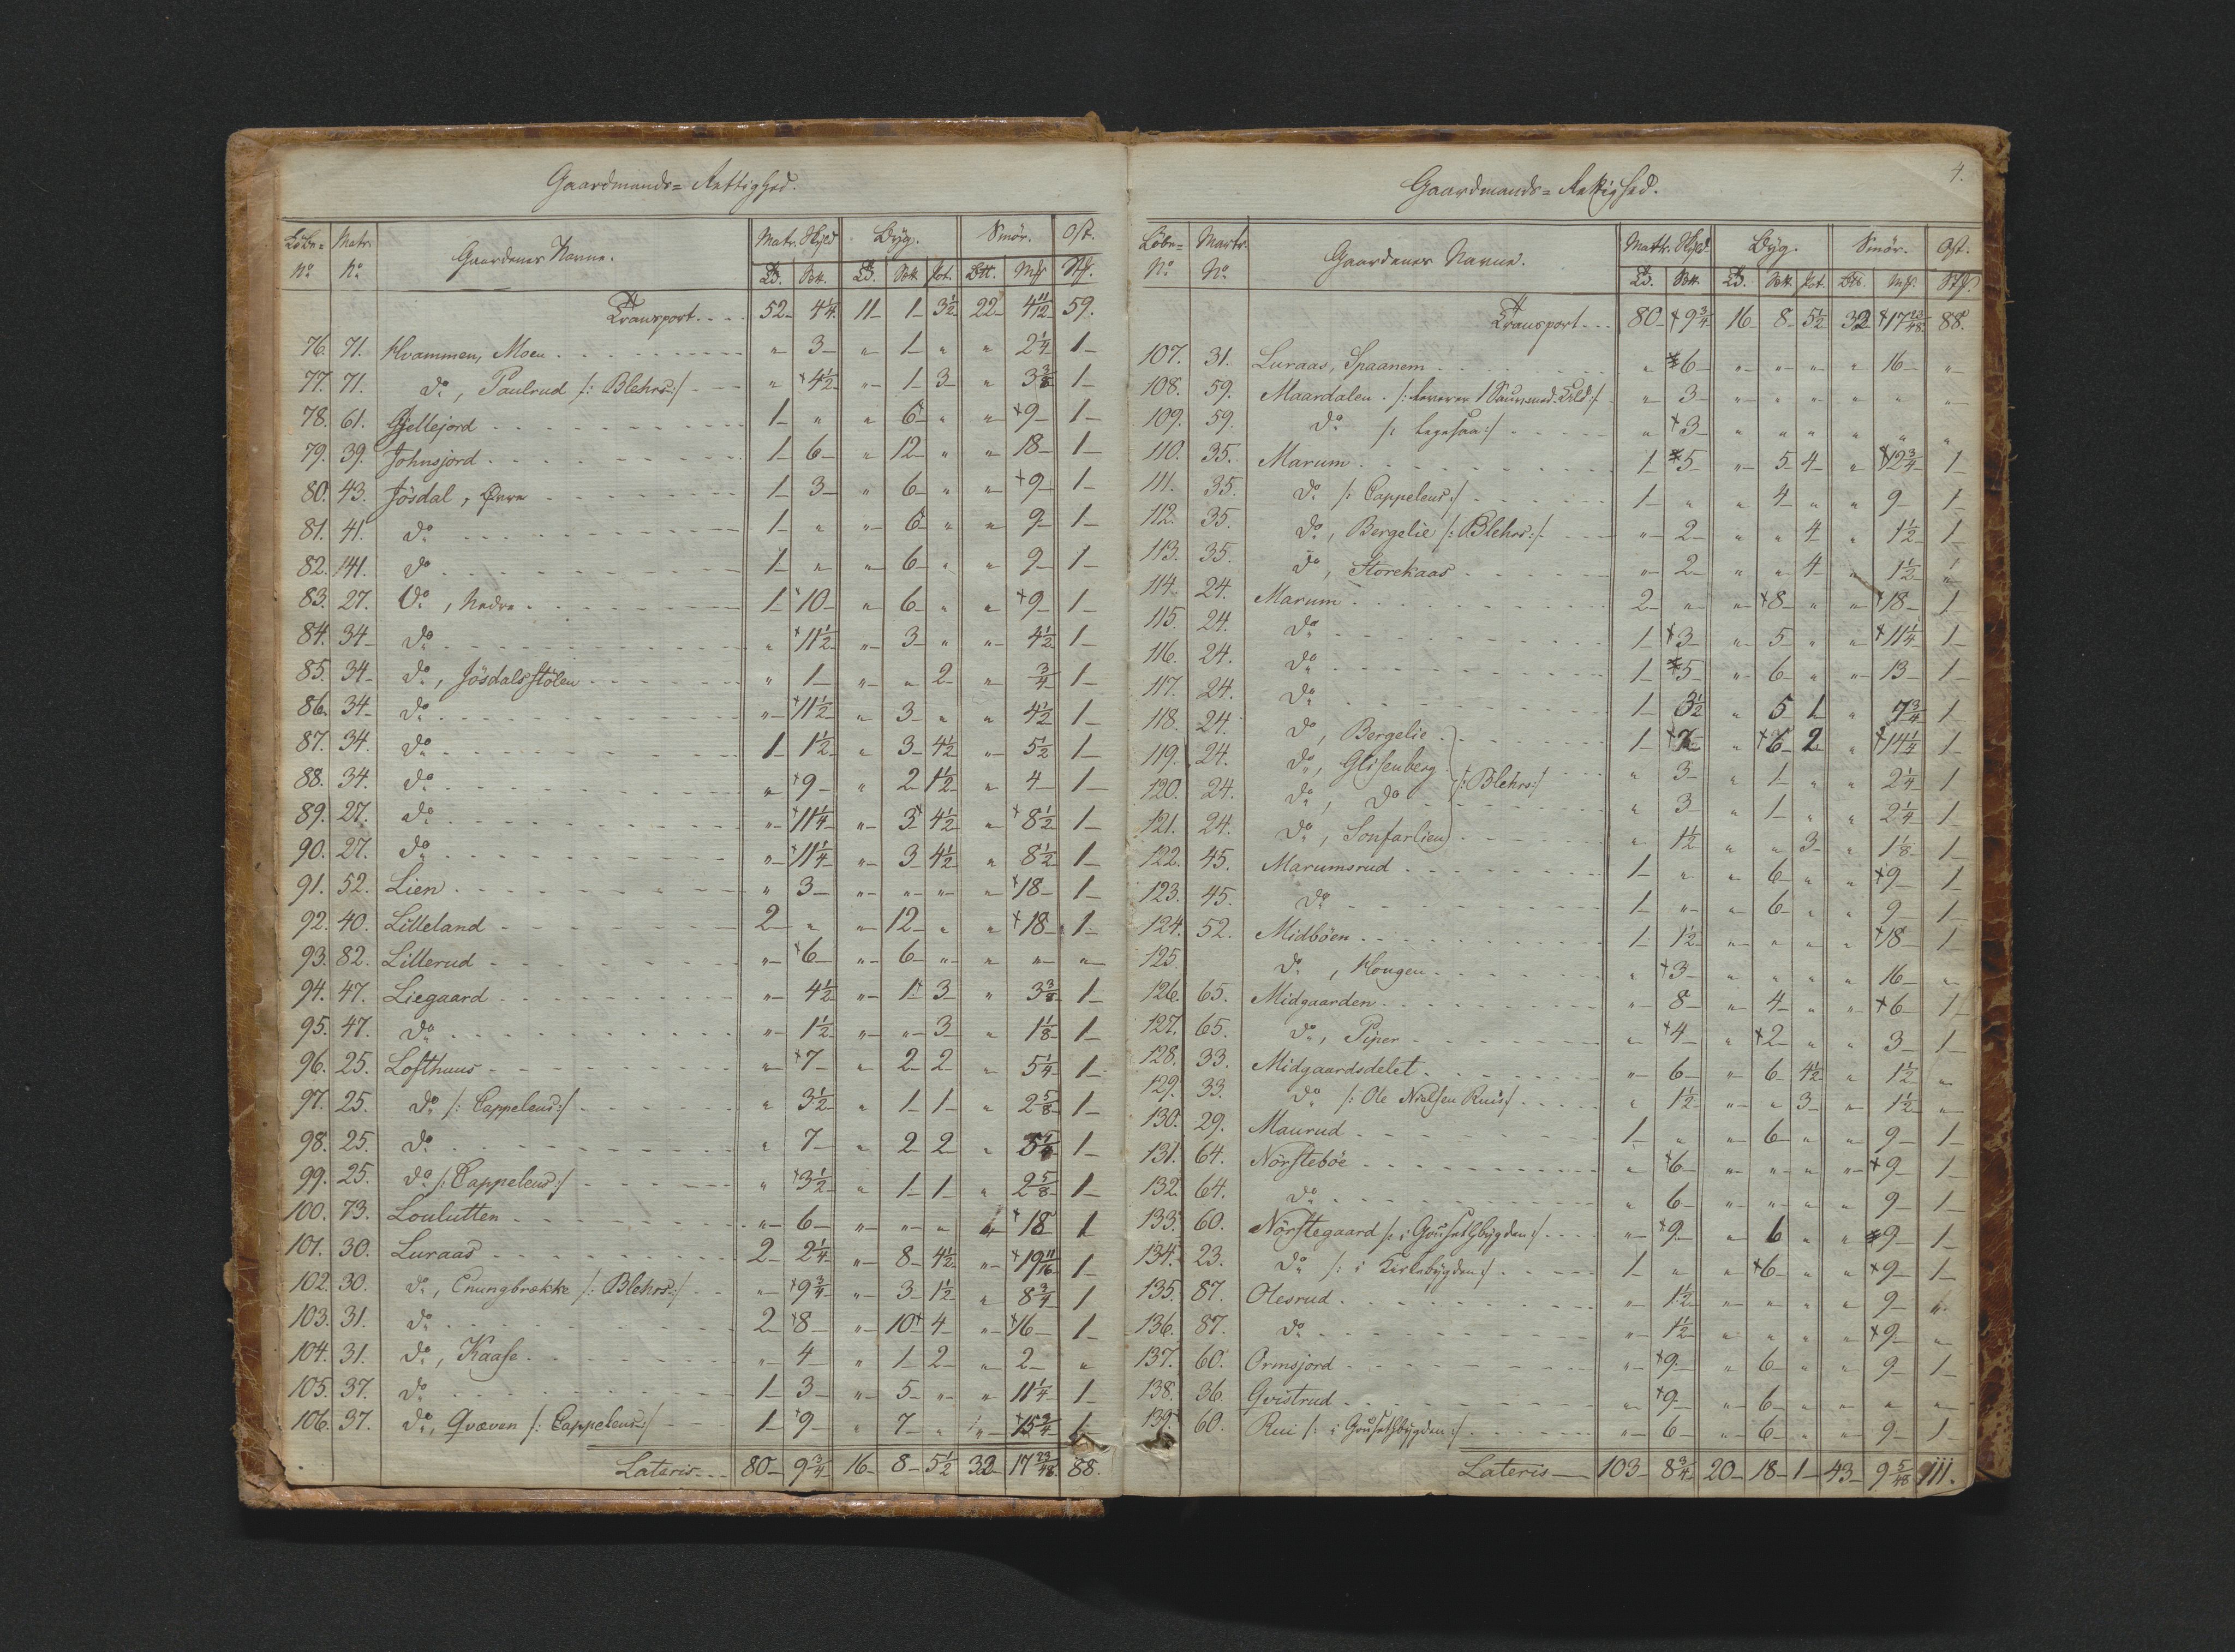 Gaardmands=Rettighed.
Löbe= Matr. Gaardenes Navne. Matr. Skyld Byg. Smör. Ost.
No. No. Ld. Sett. Ld. Sett. Pot. Mk.
Transport 52 4 1/4 11 1 3 1/2 22 4 11/12 59.
76. 71. Hvammen, Moen " 3 " 1 " " 2 1/4 1
77. 71. do, Paulrud /: Blehrs:/ " +4 1/2 " 1 3 " 3 3/8 1
78. 61. Gjellejord 1 " " 6 " " +9 1
79. 39. Johnsjord 1 6 " 12 " " 18 1
80. 43. Jösdal, Övre 1 3 " 6 " " +9 1
81. 41. do 1 " " 6 " " 9 1
82. 141. do 1 " " 6 " " 9 1
83. 27. Do, Nedre 1 +10 " 6 " " +9 1
84. 34 do " +11 1/2 " 3 " " 4 1/2 1
85. 34 do, Jösdalsstölen " 1 " " 2 " 3/4 1
86. 34 do " +11 1/2 " 3 " " 4 1/2 1
87. 34. do 1 1 1/2 " 3 4 1/2 " 5 1/2 1
88. 34. do " +9 " 2 1 1/2 " 4 1
89. 27. do " +11 1/4 " 3 4 1/2 " +8 1/2 1
90. 27. do " +11 1/4 " 3 4 1/2 " 8 1/2 1
91. 52. Lien " 3 " " " " +18 1
92. 40. Lilleland 2 " " 12 " " +18 1
93. 82. Lillerud " +6 " 6 " " " "
94. 47. Liegaard " 4 1/2 " 1 3 " 3 3/8 1
95. 47. do " 1 1/2 " " 3 " 1 1/8 1
96. 25. Lofthuus " +7 " 2 2 " 5 1/4 1
97. 25. do /: Cappelens:/ " 3 1/2 " 1 1 " 2 5/8 1
98. 25. do " 7 " 2 2 " 5 1/4 1
99. 25. do /: Cappelens:/ " +3 1/2 " 1 1 " 2 5/8 1
100. 73. Loulutten " 6 " " " " +18 1
101. 30. Luraas 2 2 1/4 " 8 4 1/2 " +19 11/16 1
102. 30. do, Enungbrække /: Blehrs:/ " +9 3/4 " 3 1 1/2 " 8 3/4 1
103. 31. do 2 +8 " 10 4 " +16 1
104. 31. do, Kaase " 4 " 1 2 " 2 "
105. 37. do 1 3 " 5 " " 11 1/4 1
106. 37. do, Qvæven /: Cappelens:/ 1 +9 " 7 " " +15 3/4 1
Lateris 80 9 3/4 16 8 5 1/2 32 17 23/48 88.
4.
Gaardmands=Rettighed.
Löbe= Martr. Gaardenes Navne. Mattr. Skyld. Byg. Smör. Ost.
No. No. Ld. Sett. Ld. Sett. Pot. Mk.
Transport 80 +9 3/4 16 8 5 1/2 32 +17 23/48 88.
107. 31. Luraas, Spaanem " +6 " " " " 16 "
108. 59. Maardalen. /: leverer 1 :/ " 3 " " " " " "
109. 59. do " +3 " " " " " "
110. 35. Marum 1 +5 " 5 4 " +12 3/4 1
111. 35. do /: Cappelens:/ 1 " " 4 " " 9 1
112. 35. do, Bergelie /: Blehrs:/ " 2 " " 4 " 1 1/2 1
113. 35. do, Storekaas " 2 " " 4 " 1 1/2 "
114. 24. Marum 2 " " +8 " " +18 1
115. 24. do 1 +3 " 5 " " +11 1/4 1
116. 24. do 1 +5 " 6 " " 13 1
117. 24. do 1 3 1/2 " 5 1 " 7 3/4 1
118. 24. do, Bergelie 1 +7 " +6 2 " +14 1/4 1
119. 24. do, Glisenberg " 3 " 1 " " 2 1/4 1
120. 24. do, do /: Blehrs:/ " 3 " 1 " " 2 1/4 1
121. 24. do, Sonfarlien " 1 1/2 " " 3 " 1 1/8 1
122. 45. Marumsrud 1 " " 6 " " +9 1
123. 45. do 1 " " 6 " " 9 1
124. 52. Midböen 1 1 1/2 " " " " +18 1
125. do, Hougen " +3 " " " " 16 "
126. 65. Midgaarden " 8 " 4 " " +6 1
127. 65. do, Piper " +4 " +2 " " 3 1
128. 33. Midgaardsdelet " 6 " 6 4 1/2 " 1 1/2 "
129. 33. do /: Ole Nielsen Ruis:/ " 1 1/2 " " 3 " 1 1/2 "
130. 29. Maurud 1 " " 6 " " 9 1
131. 64. Nörsteböe " +6 " " " " +9 1
132. 64. do " 6 " " " " 9 1
133. 60. Nörstegaard /: i Gousethbygden:/ " +9 " 6 " " +9 1
134. 23. do /: i Kirkebygden:/ 1 " " +6 " " +9 1
135. 87. Olesrud " 1 1/2 " " " " 9 "
136. 87. do " 1 1/2 " " " " +9 "
137. 60. Ormsjord " +9 " 6 " " 9 1
138. 36. Gvistrud " +9 " 6 " " " "
139. 60. Rui /: i Gousethbygden:/ " 6 " 6 " " 9 1
Lateris 103 8 3/4 20 18 1 43 9 5/48 111.